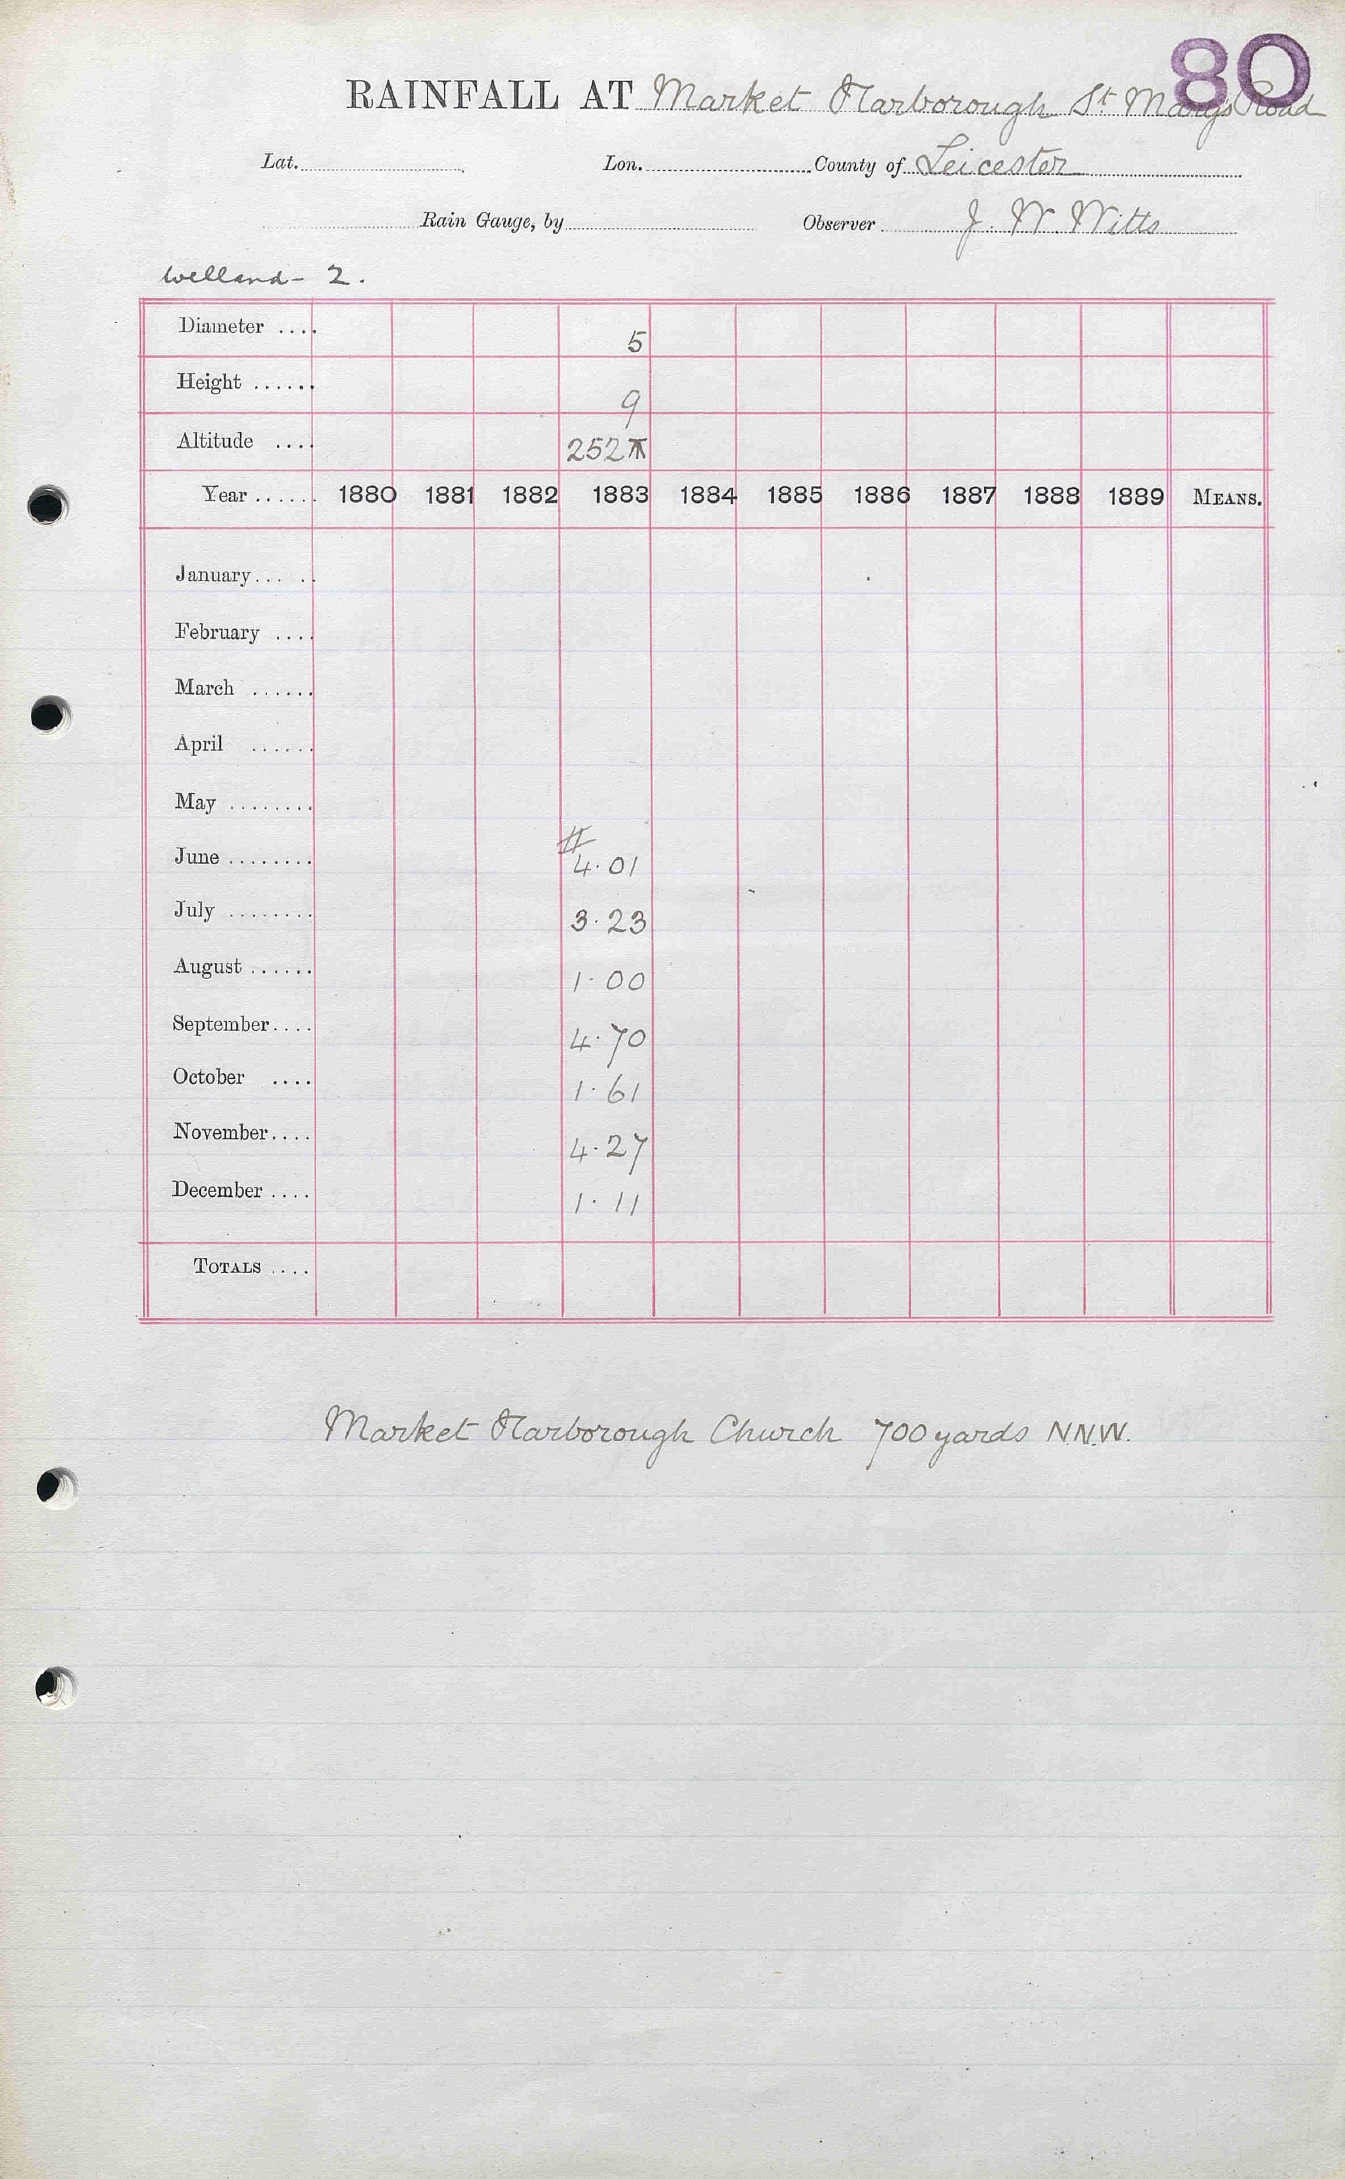 80
RAINFALL AT Market Harborough St Marys Road
Lat. Lon. County of Leicester
Rain Gauge, by Observer J. W. Witts
Welland - 2.
Diameter .... 5
Height ...... 9
Altitude .... 252
Year ...... 1880 1881 1882 1883 1884 1885 1886 1887 1888 1889 MEANS.
January... ..
February ....
March ......
April ......
May ........
#
June ........ 4.01
July ........ 3.23
August ...... 1.00
September.... 4.70
October .... 1.61
November.... 4.27
December .... 1.11
TOTALS ....
Market Harborough Church 700 yards N.N.W.